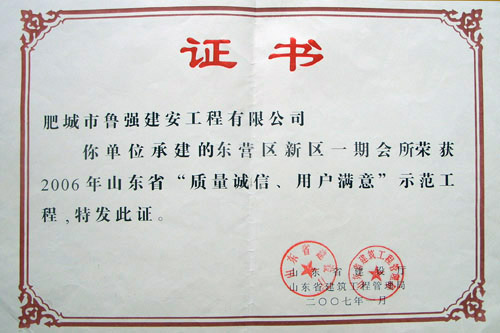 证书
肥城市鲁强建安工程有限公司
你单位承建的东营区新区一期会所荣获
2006年山东省“质量诚信、用户满意”示范工
程,特发此证。
山东省建设厅
山东省建筑工程管理局
二〇〇七年一月